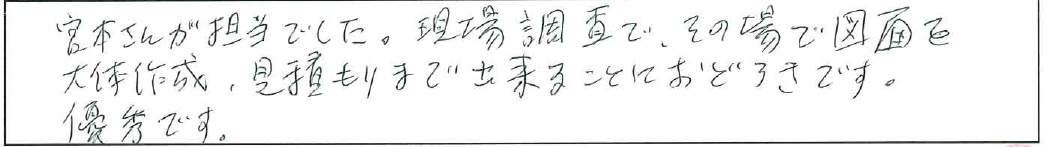 宮本さんが担当でした。現場調査で、その場で図面を
大体作成、見積もりまで出来ることにおどろきです。
優秀です。